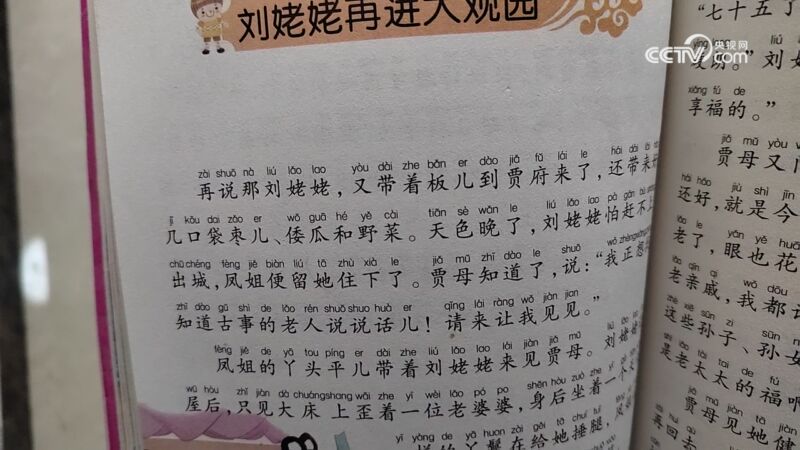 刘姥姥再进大观园
zài shuō nà liú lǎo lao yòu dài zhe bǎn er dào jiǎ fǔ lái le hái dài lái
再说那刘姥姥，又带着板儿到贾府来了，还带来好
jǐ kǒu dai zǎo er wō guā hé yě cài tiān sè wǎn le liú lǎo lao pà gǎn bú
几口袋枣儿、倭瓜和野菜。天色晚了，刘姥姥怕赶不上
chū chéng fèng jiě biàn liú tā zhù xià le jiǎ mǔ zhī dào le shuō wǒ zhèng
出城，凤姐便留她住下了。贾母知道了，说：“我正想
zhī dào gǔ shì de lǎo rén shuō shuo huà er qǐng lái ràng wǒ jiàn jian
知道古事的老人说说话儿！请来让我见见。”
fèng jiě de yā tou píng er dài zhe liú lǎo lao lái jiàn jiǎ mǔ liú lǎo
凤姐的丫头平儿带着刘姥姥来见贾母。刘姥姥
wū hòu zhǐ jiàn dà chuáng shang wāi zhe yí wèi lǎo pó po shēn hòu zuò zhe yí
屋后，只见大床上歪着一位老婆婆，身后坐着一个
yī yàng de yā huan zài gěi tā chuí tuǐ
一样的丫鬟在给她捶腿，
“七十五了
liú
刘
xiǎng fú de
享福的。”
jiǎ mǔ yòu
贾母又
hái hǎo jiù shì jīn
还好，就是今
lǎo le yǎn yě huā
老了，眼也花
lǎo qīn qi wǒ dōu
老亲戚，我都
zhè xiē sūn zi sūn
这些孙子、孙女
shì lǎo tài tai de fú
是老太太的福啊
jiǎ mǔ jiàn tā jiàn
贾母见她健
再回去
CCTV 央视网